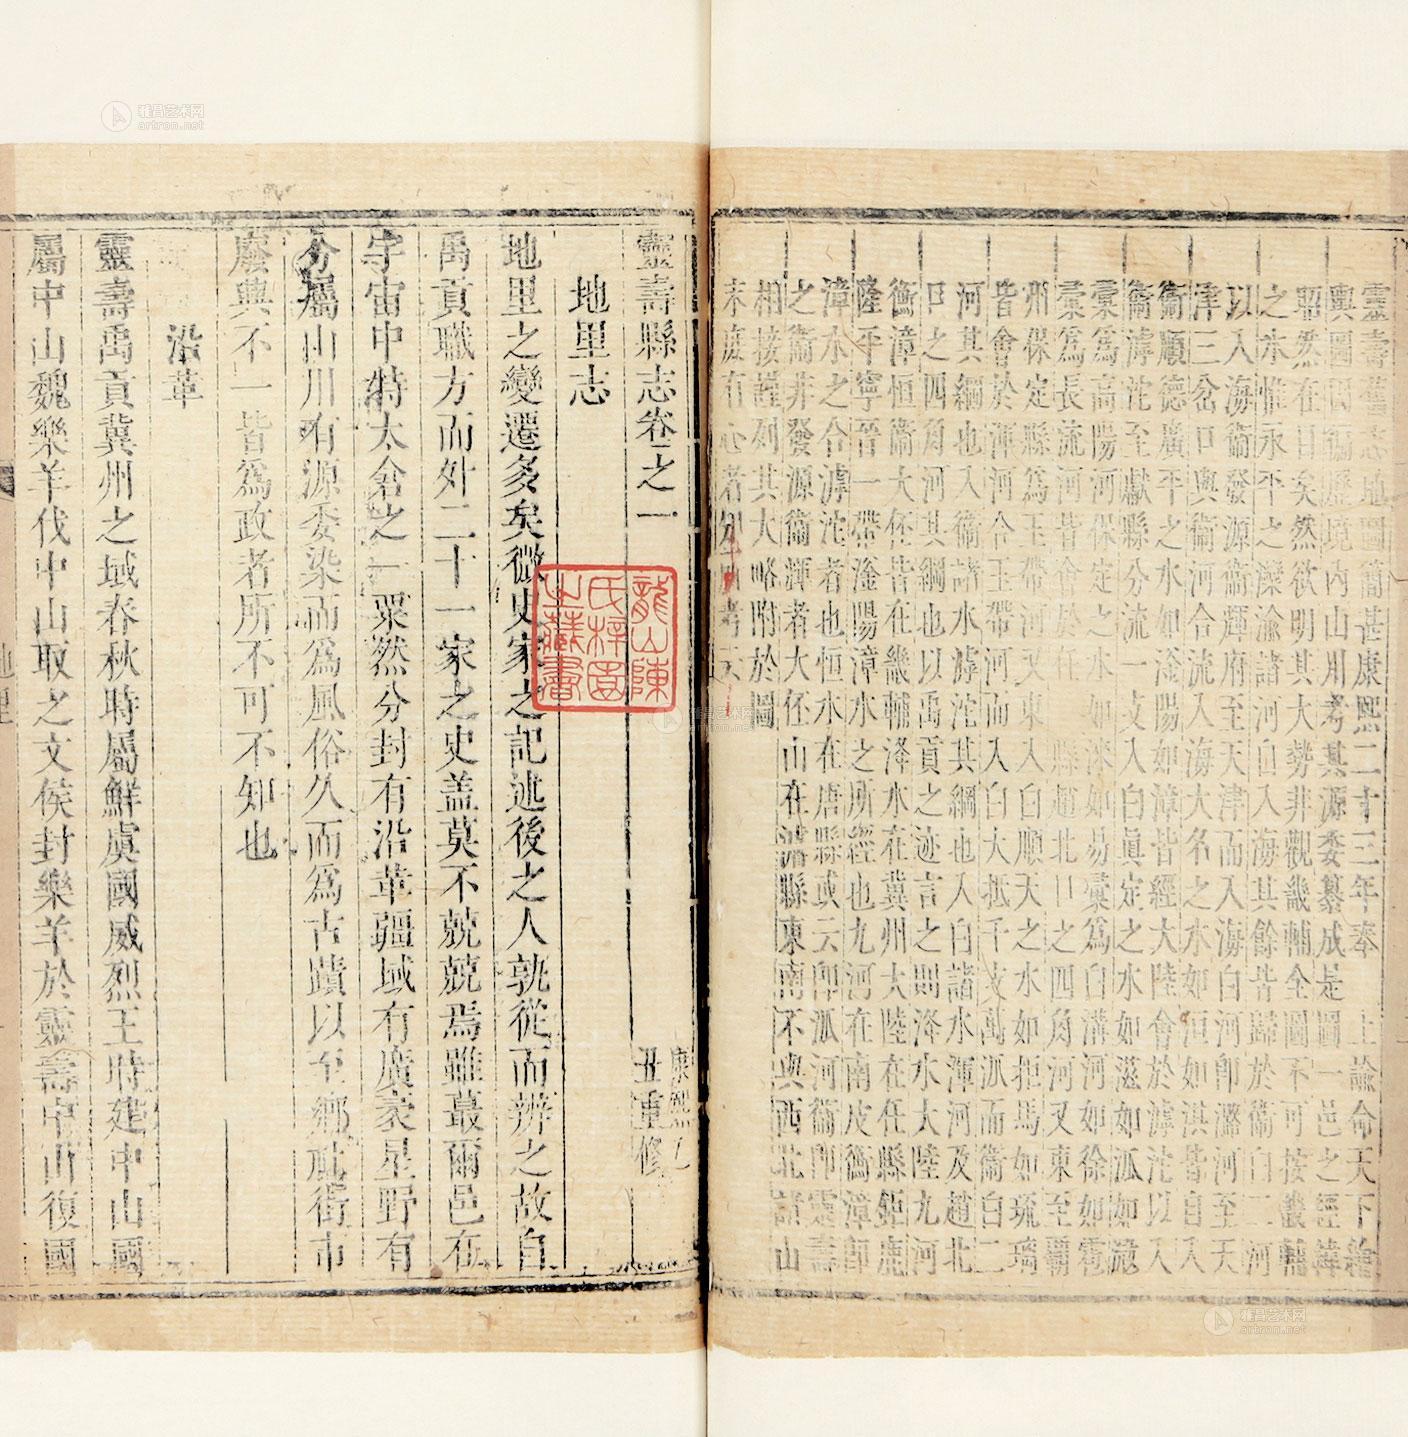 靈壽舊志地圖簡甚康熙二十三年奉 上諭命天下繪
輿圖因徧歷境內山川考其源委纂成是圖一邑之經緯
昭然在目矣然欲明其大勢非觀畿輔全圖不可按畿輔
之水惟永平之濼渝諸河自入海其餘皆歸於衞白二河
以入海衞發源衞輝府至天津而入海白河卽潞河至天
津三岔口與衞河合流入海大名之水如洹如淇皆自入
衞順德廣平之水如滏陽如漳皆經大陸會於滹沱以入
衞滹沱至獻縣分流一支入白眞定之水如滋如泒如滱
彙為高陽河保定之水如淶如易彙為白溝河如徐如雹
彙為長流河皆合於任 縣趙北口之四角河又東至霸
州保定縣爲玉帶河又東入白順天之水如拒馬如琉璃
皆會於渾河合玉帶河而入白大抵千支萬泒而衞白二
河其綱也入衞諸水滹沱其綱也入白諸水渾河及趙北
口之四角河其綱也以禹貢之迹言之則洚水大陸九河
衡漳恒衞大伾皆在畿輔洚水在冀州大陸在任縣鉅鹿
隆平寧晉一帶滏陽漳水之所經也九河在南皮衡漳卽
漳水之合滹沱者也恒水在唐縣或云卽泒河衞卽靈壽
之衞非發源衞輝者大伾山在濬縣東南不與西北諸山
相接謹列其大略附於圖
末庶有心者知所考云
靈壽縣志卷之一
康熙乙
丑重修
地里志
地里之變遷多矣微史家之記述後之人孰從而辨之故自
禹貢職方而外二十一家之史蓋莫不兢兢焉雖蕞爾邑在
宇宙中特太倉之一粟然分封有沿革疆域有廣袤星野有
分屬山川有源委染而爲風俗久而爲古蹟以至鄉社街市
廢興不一皆爲政者所不可不知也
沿革
靈壽禹貢冀州之域春秋時屬鮮虞國威烈王時建中山國
屬中山魏樂羊伐中山取之文侯封樂羊於靈壽中山復國
地里
龍山陳
氏梓園
之藏書
雅昌艺术网
artron.net
雅昌艺术网
artron.net
雅昌艺术网
artron.net